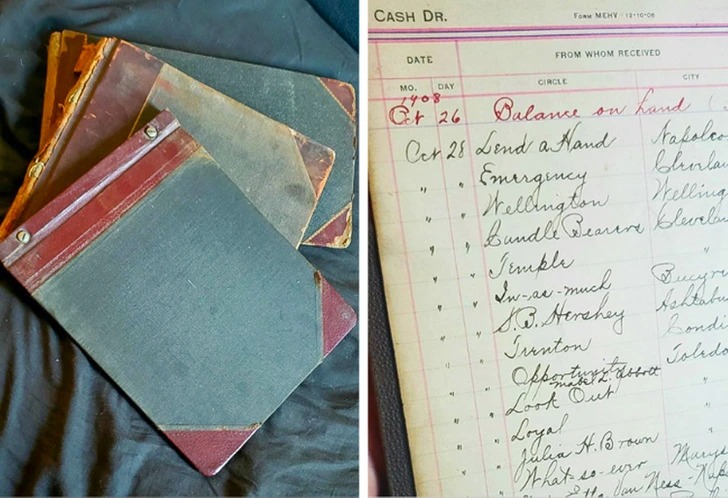 CASH DR. FORM MEHV 12-10-06
DATE FROM WHOM RECEIVED
MO. DAY CIRCLE CITY
1908
Oct 26 Balance on hand
Oct 28 Lend a Hand Napoleo
" " Emergency Clevela
" " Wellington Welling
" " Bearers Clevela
" " Temple "
" " In-as-much Bucyru
" " S.B. Hershey Ashtabu
" " Trenton Condi
" " Opportunity Toledo
Mabel L. Abbott
" " Look Out "
" " Loyal "
" " Julia H. Brown Marys
" " What-so-ever Nap
Van Ness